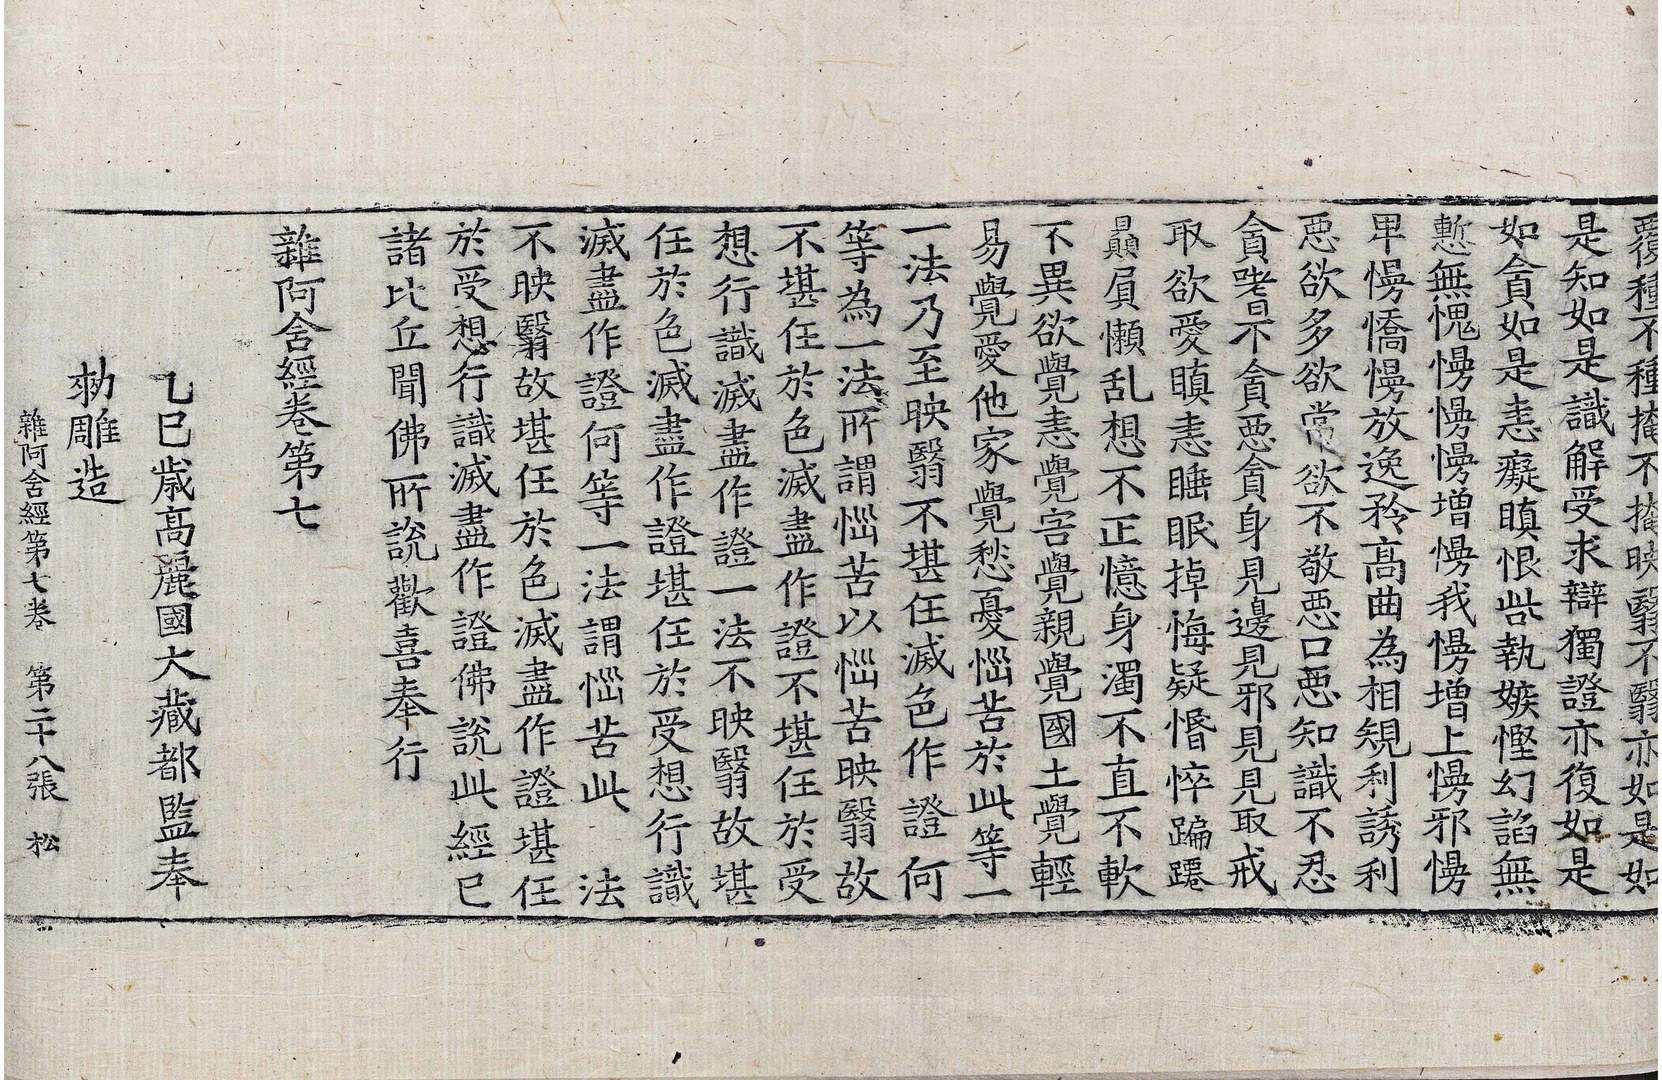 覆種不種掩不掩映翳不翳亦如是如
是知如是識解受求辯獨證亦復如是
如貪如是恚癡瞋恨呰執嫉慳幻諂無
慙無愧慢慢慢增慢我慢增上慢邪慢
卑慢憍慢放逸矜高曲為相規利誘利
惡欲多欲常欲不敬惡口惡知識不忍
貪嗜不貪惡貪身見邊見邪見見取戒
取欲愛瞋恚睡眠掉悔疑惛悴蹁蹮
贔屓懶乱想不正憶身濁不直不軟
不異欲覺恚覺害覺親覺國土覺輕
易覺愛他家覺愁憂惱苦於此等一
一法乃至映翳不堪任滅色作證何
等為一法所謂惱苦以惱苦映翳故
不堪任於色滅盡作證不堪任於受
想行識滅盡作證一法不映翳故堪
任於色滅盡作證堪任於受想行識
滅盡作證何等一法謂惱苦此 法
不映翳故堪任於色滅盡作證堪任
於受想行識滅盡作證佛說此經已
諸比丘聞佛所說歡喜奉行
雜阿含經卷第七
乙巳歲高麗國大藏都監奉
勅雕造
雜阿含經第七卷 第二十八張 松